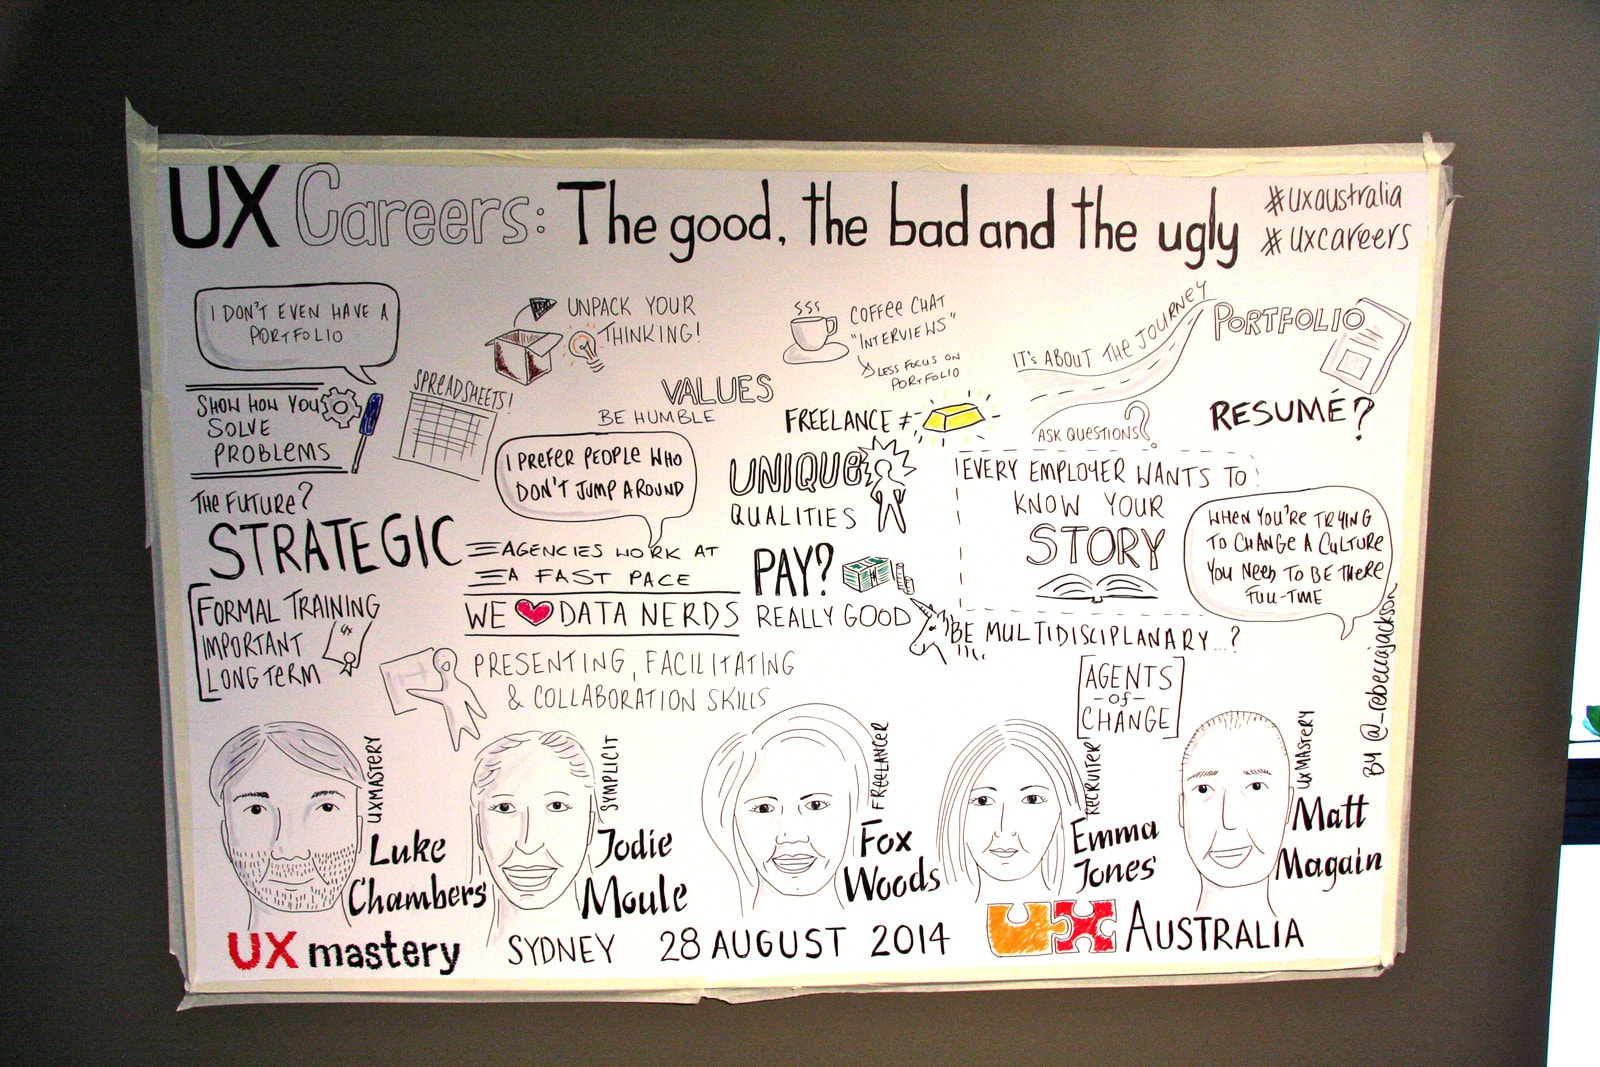 UX Careers: The good, the bad and the ugly
#uxaustralia
#uxcareers
I DON'T EVEN HAVE A
PORTFOLIO
UNPACK YOUR
THINKING!
COFFEE CHAT
"INTERVIEWS"
LESS FOCUS ON
PORTFOLIO
IT'S ABOUT THE JOURNEY
PORTFOLIO
RESUMÉ?
SHOW HOW YOU
SOLVE
PROBLEMS
SPREADSHEETS!
VALUES
BE HUMBLE
FREELANCE ≠
ASK QUESTIONS?
I PREFER PEOPLE WHO
DON'T JUMP AROUND
UNIQUE
QUALITIES
EVERY EMPLOYER WANTS TO
KNOW YOUR
STORY
WHEN YOU'RE TRYING
TO CHANGE A CULTURE
YOU NEED TO BE THERE
FULL-TIME
THE FUTURE?
STRATEGIC
AGENCIES WORK AT
A FAST PACE
WE ❤ DATA NERDS
PAY?
REALLY GOOD
BE MULTIDISCIPLANARY...?
FORMAL TRAINING
IMPORTANT
LONG TERM
UX
PRESENTING, FACILITATING
& COLLABORATION SKILLS
AGENTS
-OF-
CHANGE
BY @_rebeccajackson
UXMASTERY
Luke
Chambers
SYMPLICIT
Jodie
Moule
FREELANCER
Fox
Woods
RECRUITER
Emma
Jones
UXMASTERY
Matt
Magain
UX mastery
SYDNEY 28 AUGUST 2014
UX AUSTRALIA